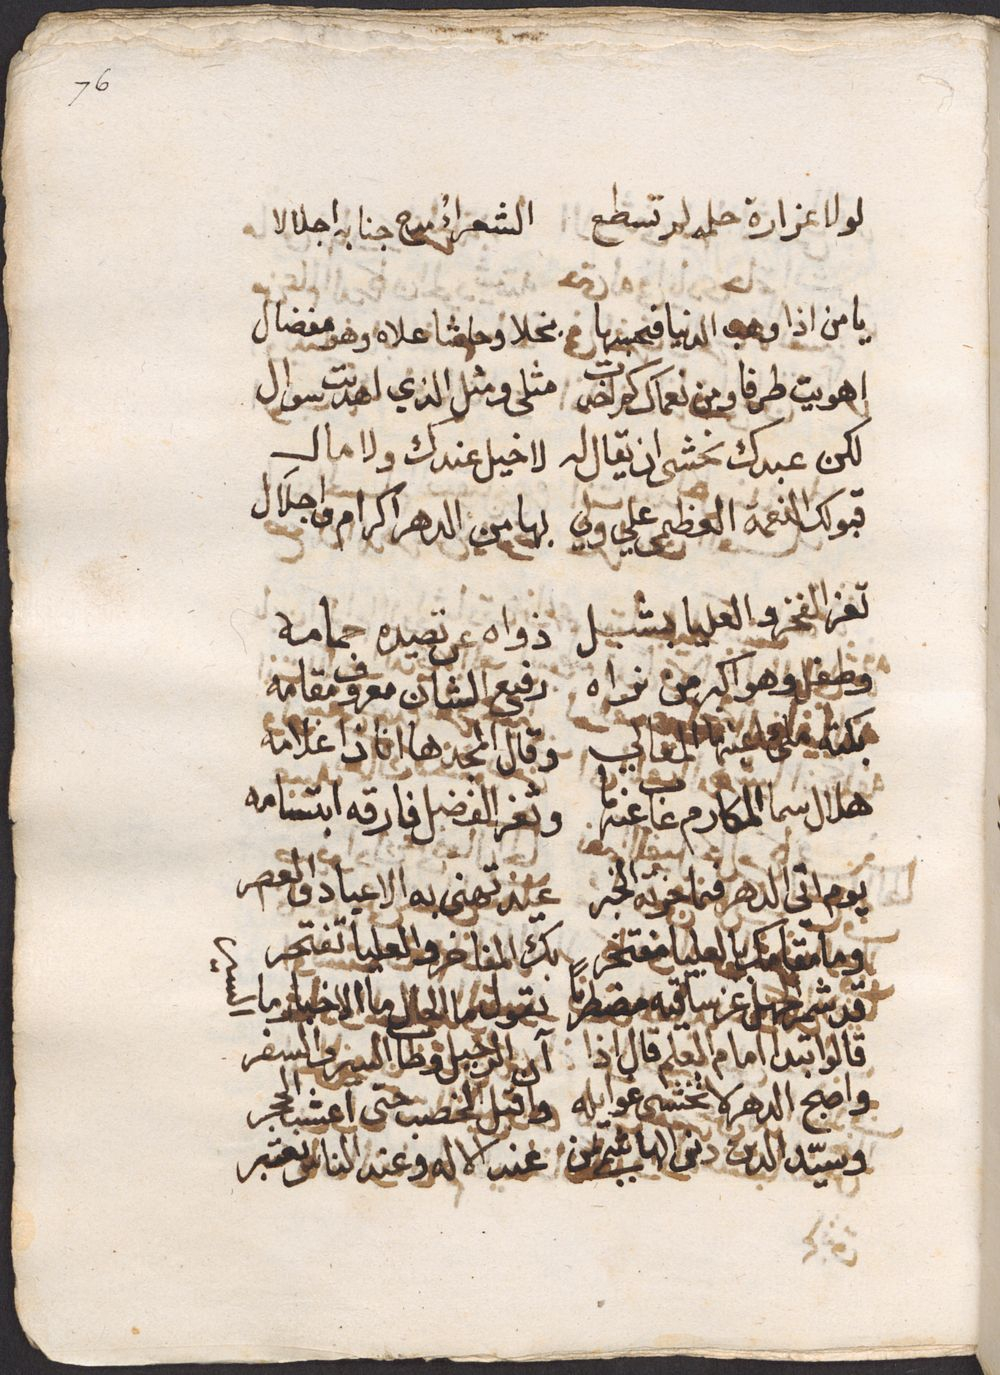 76
لولا غزارة حلمه لم تسطع الشعراء مدح جنابه اجلالا
يا من اذا وهب الدنيا فحسبها بخلا وحاشا علاه وهو مفضال
اهويت طرفا ومن نعماك كم اخذت مثلي ومثل الذي اهديت سوال
لكن عبدك تخشى ان يقال له لا خيل عندك ولا مال
قبولك النعمة العظمى علي ولي بها من الدهر اكرام واجلال
تعز الفخر والعليا بشبل ذواه عن تصيده حمامه
وطفل وهو اكبر من نراه رفيع الشان معروف مقامه
بكته ملئ عينها المعالي وقال المجد ها انا ذا غلامه
هلال سما المكارم غاب عنها وثغر الفضل فارقه ابتسامه
يوم اتى الدهر فيما خوبه الخبر عيد تهنى به الاعياد والعصر
وما مقامك بالعليا مفتخر بك المفاخر والعليا تفتخر
قد شمر الجهل عن ساقيه مضطربا بقوله ما الحال ما الاخبار وما
قالوا بدا امام العلم قال اذا آن الرحيل وطاب السير والسفر
واصبح الدهر لا تخشى غوايله واقبل الخصب حتى اعشب الحجر
وسيد الدين عند الاله وعند الناس معتبر